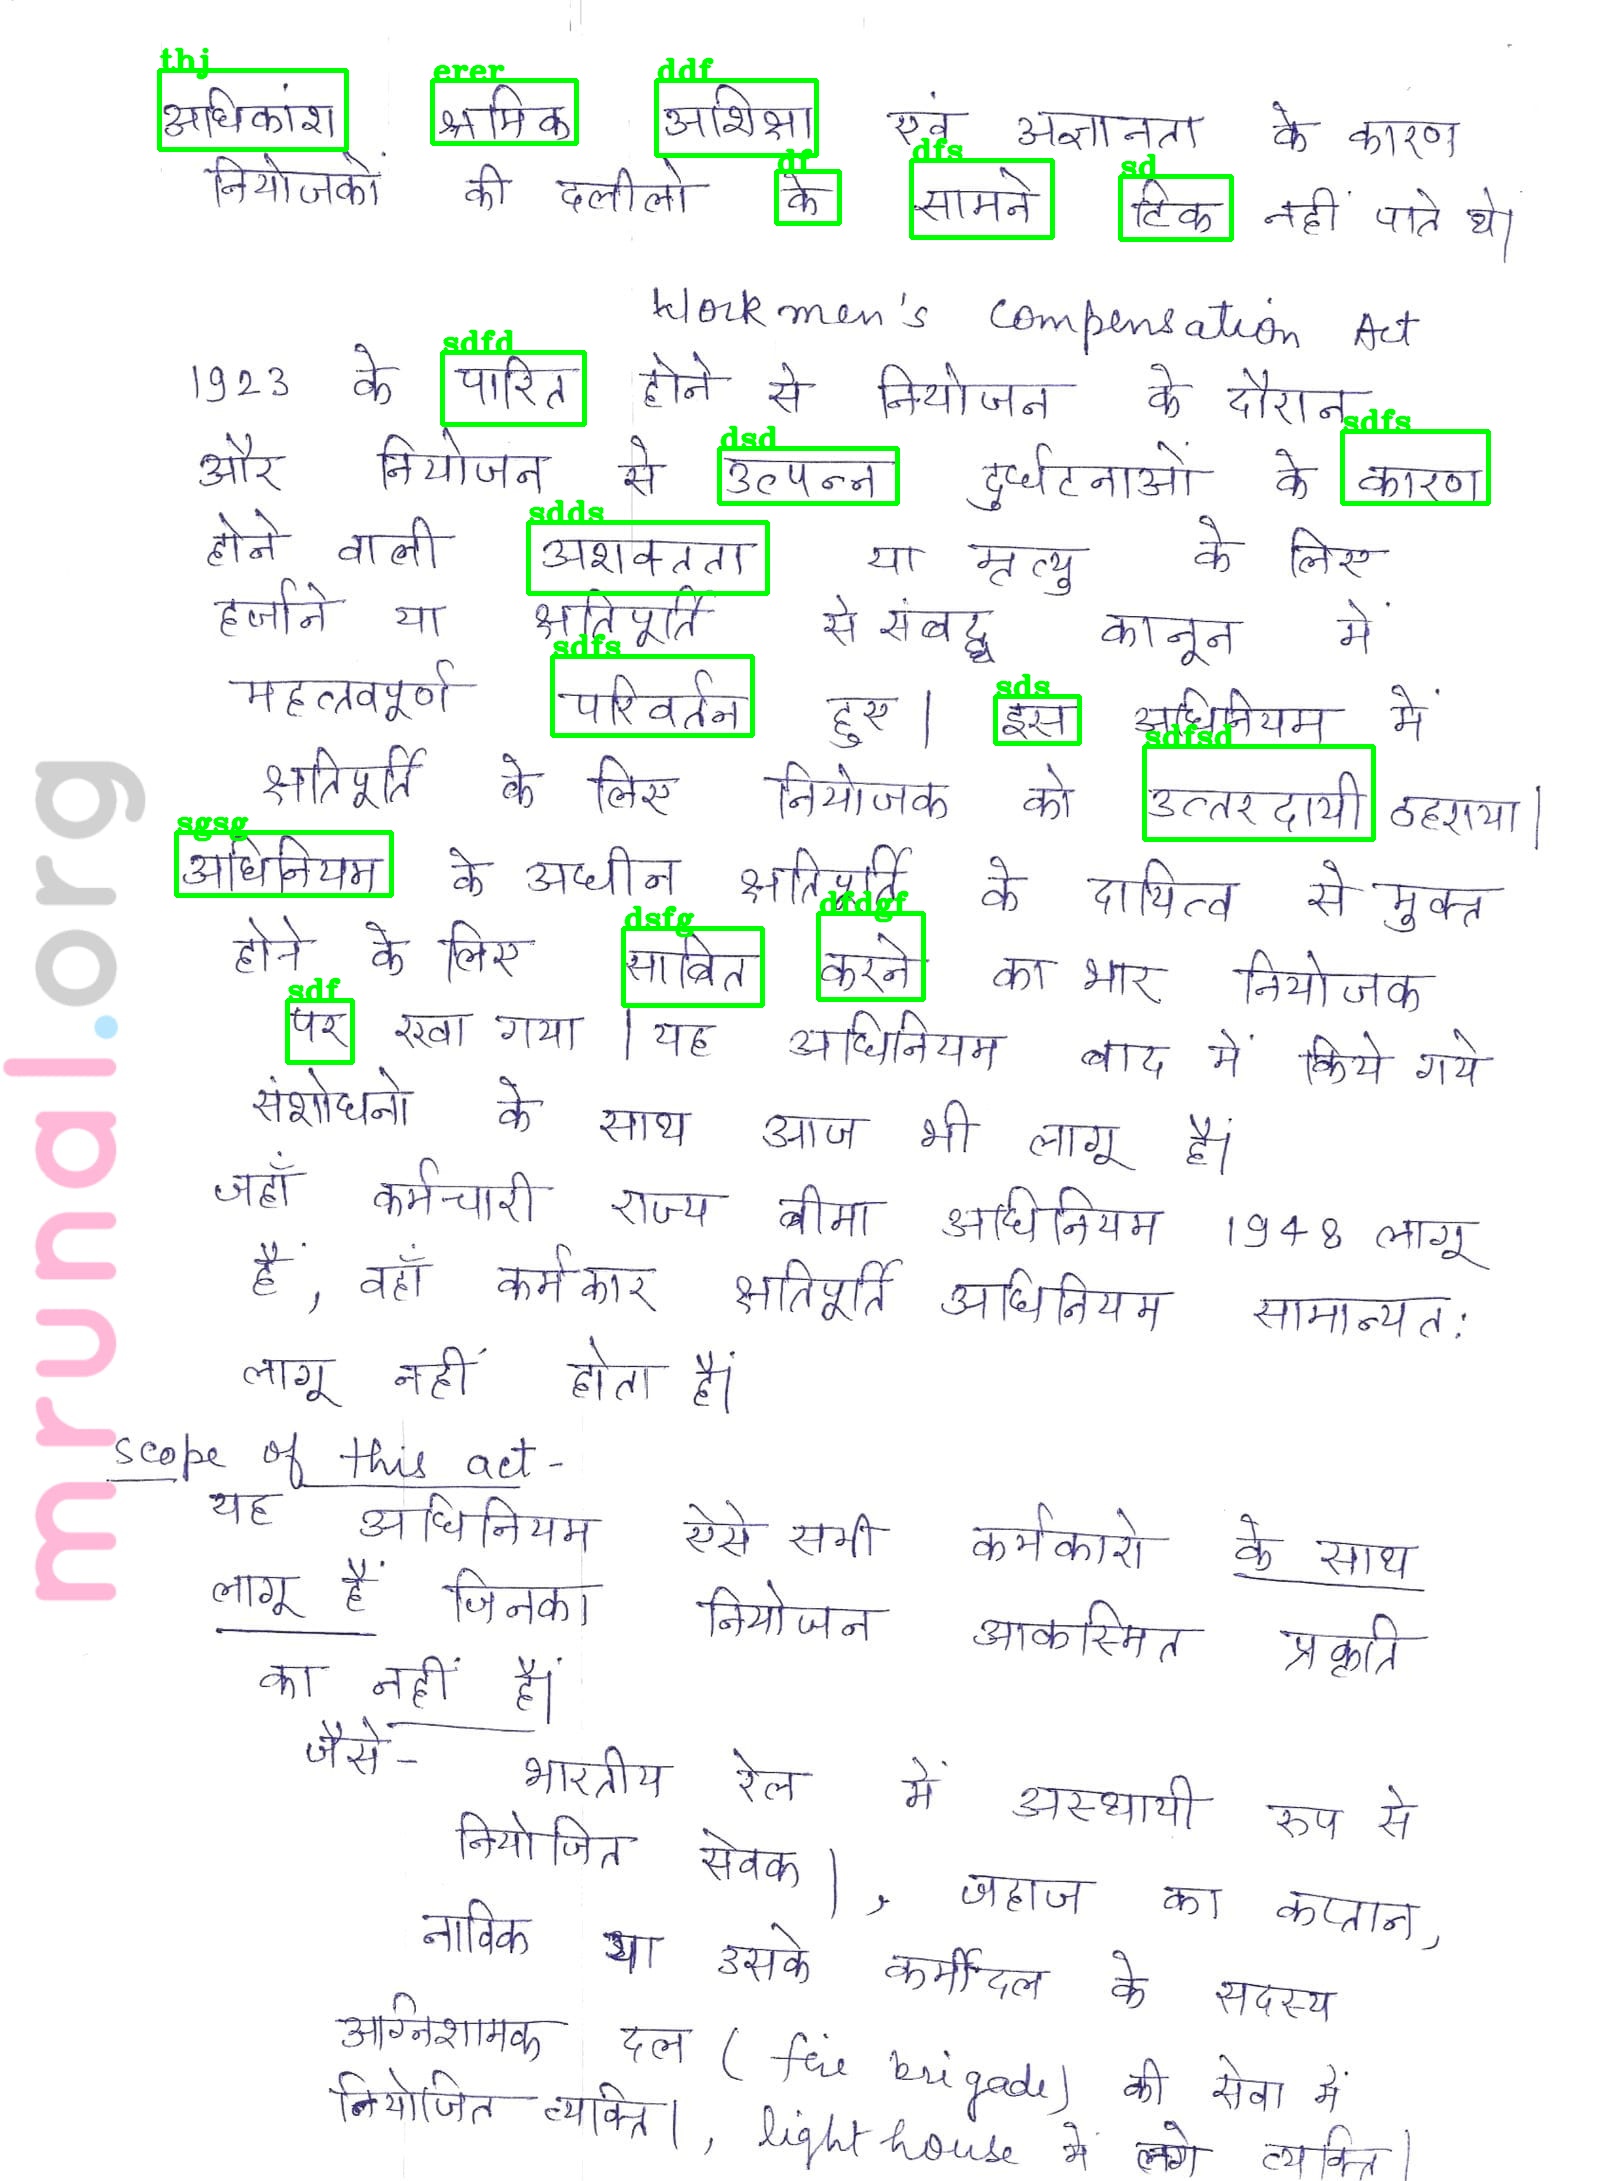 thj erer ddf
अधिकांश श्रमिक अशिक्षा एवं अज्ञानता के कारण
df dfs sd
नियोजकों की दलीलो के सामने टिक नहीं पाते थे।
Workmen's Compensation Act
sdfd
1923 के पारित होने से नियोजन के दौरान
dsd sdfs
और नियोजन से उत्पन्न दुर्घटनाओं के कारण
sdds
होने वाली अशक्तता या मृत्यु के लिए
हर्जाने या क्षतिपूर्ति से संबद्ध कानून में
sdfs sds
महत्वपूर्ण परिवर्तन हुए। इस अधिनियम में
sdfsd
क्षतिपूर्ति के लिए नियोजक को उत्तरदायी ठहराया।
sgsg
अधिनियम के अधीन क्षतिपूर्ति के दायित्व से मुक्त
dsfg dfdgf
होने के लिए साबित करने का भार नियोजक
sdf
पर रखा गया। यह अधिनियम बाद में किये गये
संशोधनो के साथ आज भी लागू हैं।
जहाँ कर्मचारी राज्य बीमा अधिनियम 1948 लागू
हैं, वहाँ कर्मकार क्षतिपूर्ति अधिनियम सामान्यत:
लागू नहीं होता हैं।
Scope of this act-
यह अधिनियम ऐसे सभी कर्मकारो के साथ
लागू हैं जिनका नियोजन आकस्मित प्रकृति
का नहीं हैं।
जैसे- भारतीय रेल में अस्थायी रूप से
नियोजित सेवक।, जहाज का कप्तान,
नाविक या उसके कर्मीदल के सदस्य
अग्निशामक दल (fire brigade) की सेवा में
नियोजित व्यक्ति।, light house में लगे व्यक्ति।
mrunal.org